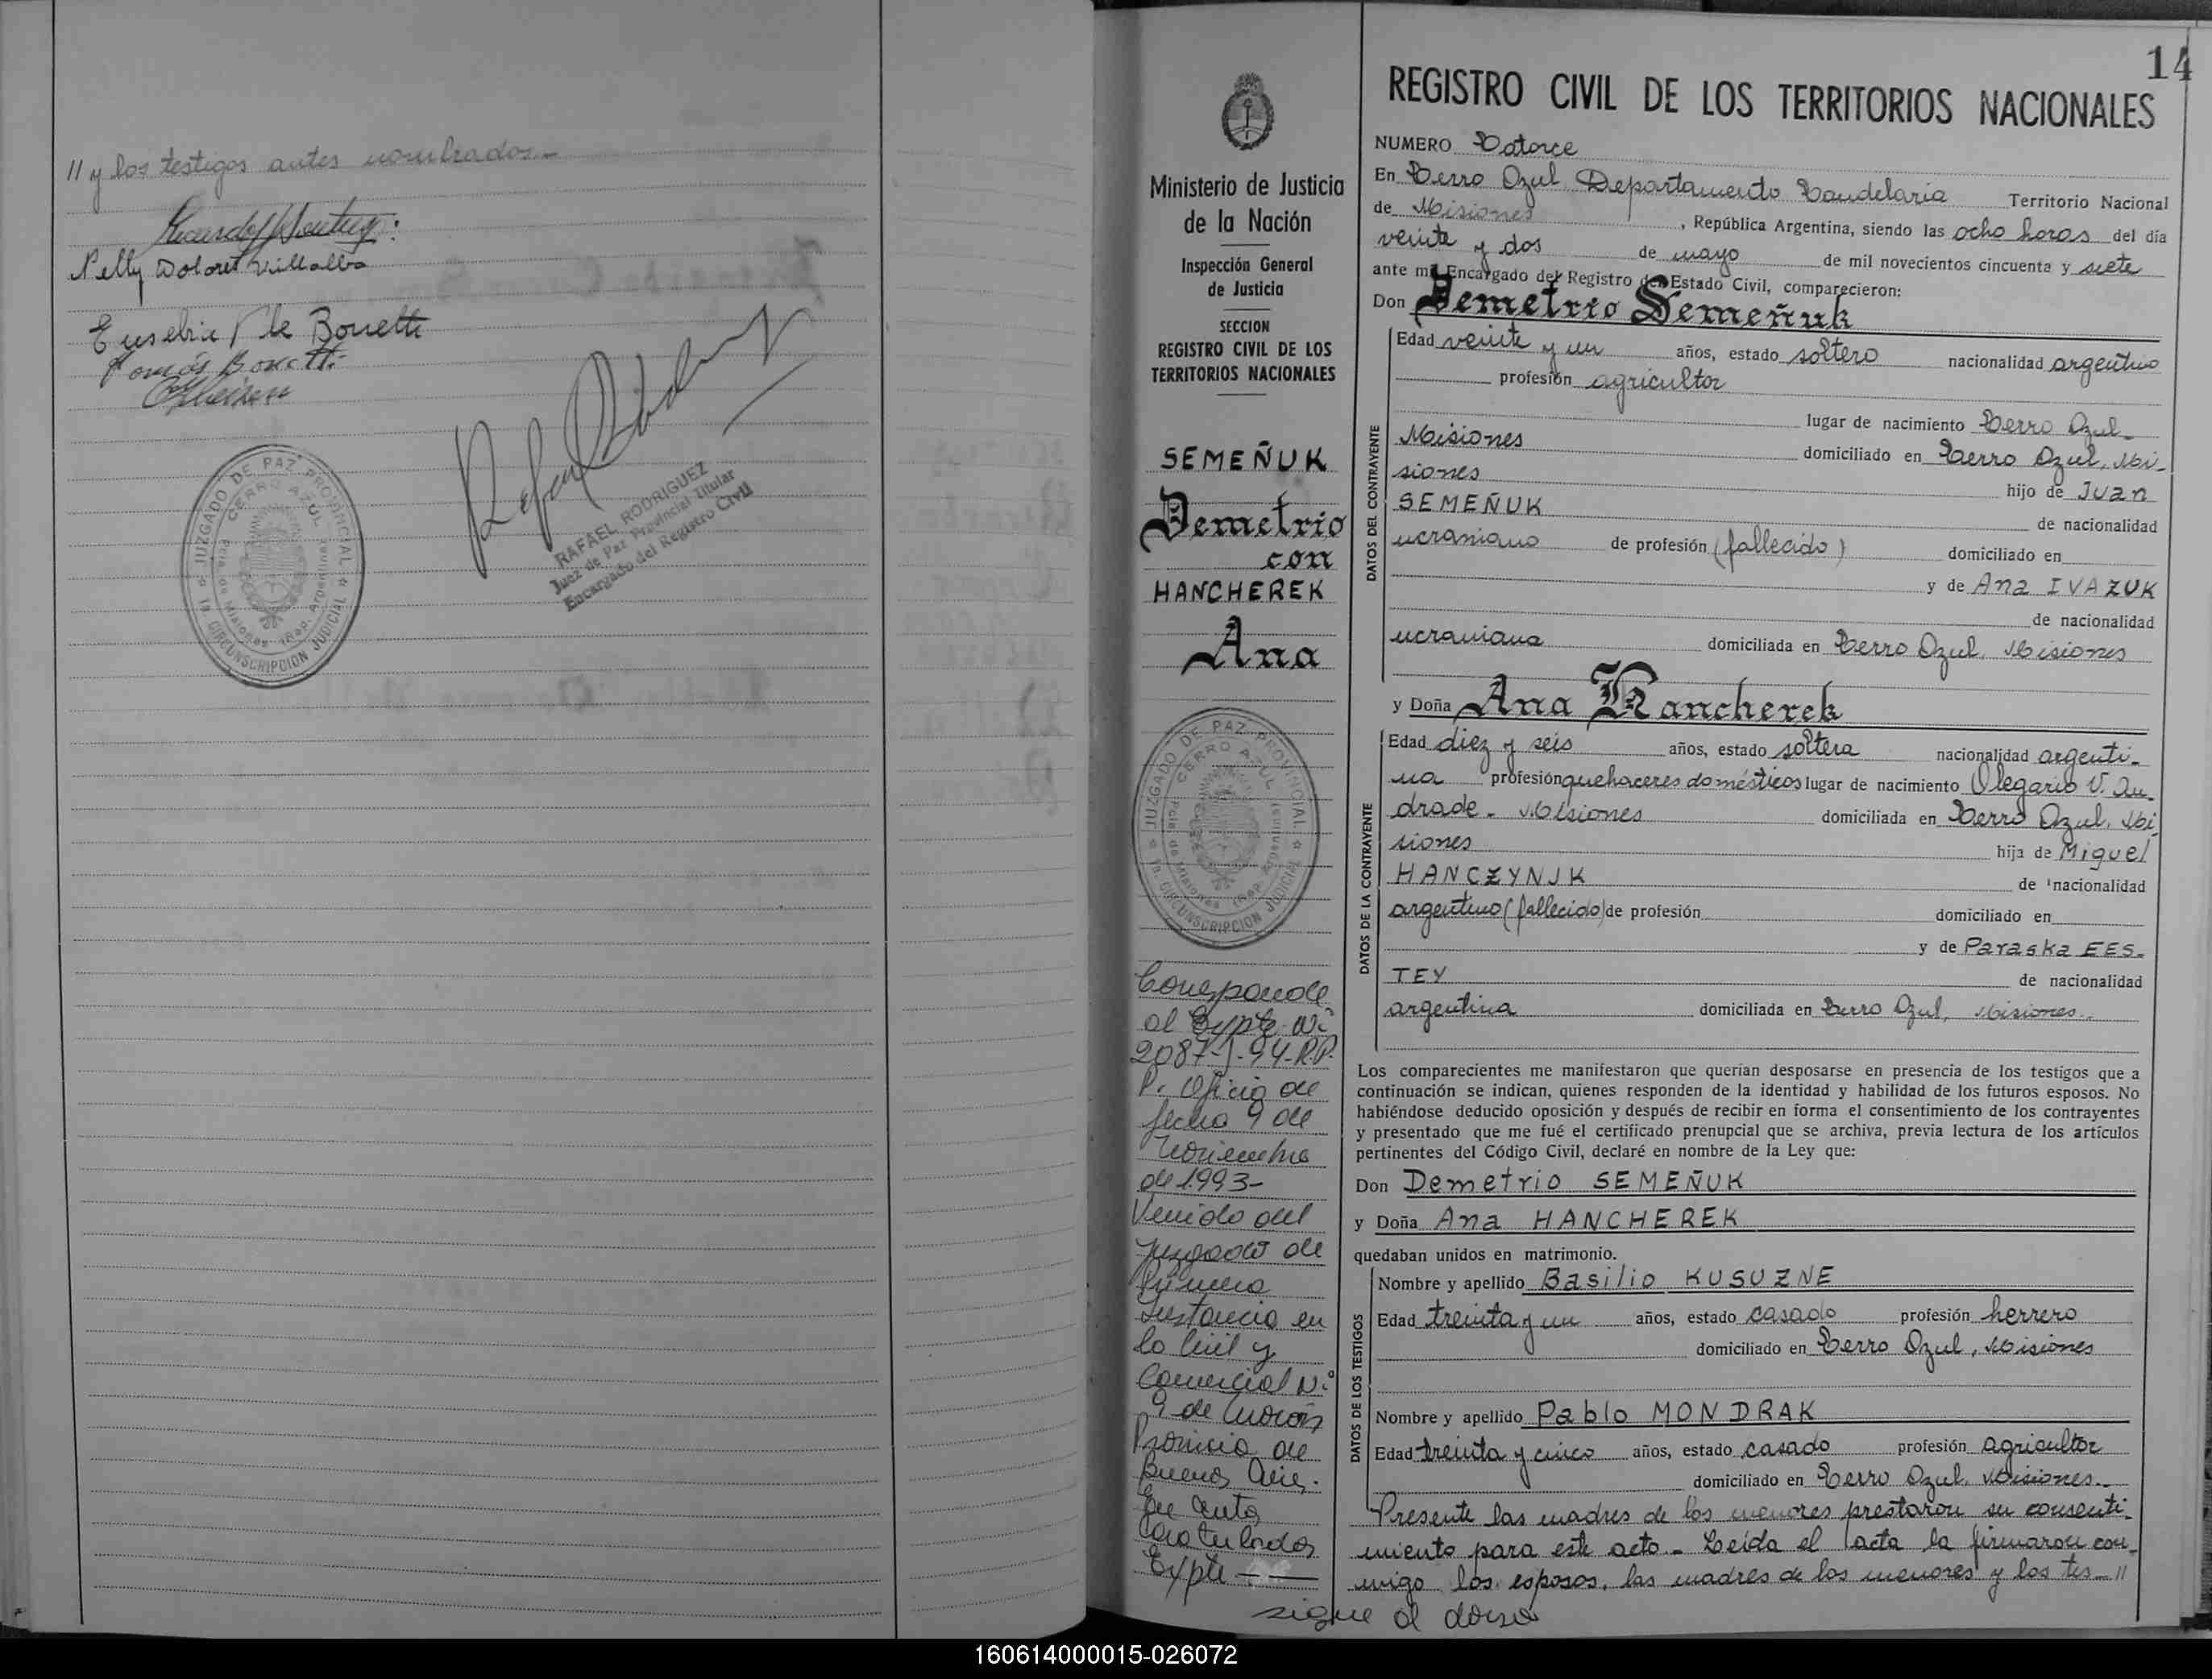 // y los testigos antes nombrados.-
Nelly Dolores Villalba
Eusebia V de Bonetti
Tomás Bonetti
JUZGADO DE PAZ PROVINCIAL
CERRO AZUL
Pcia. de Misiones (Rep. Argentina)
1a. CIRCUNSCRIPCION JUDICIAL
RAFAEL RODRIGUEZ
Juez de Paz Provincial Titular
Encargado del Registro Civil
Ministerio de Justicia
de la Nación
Inspección General
de Justicia
SECCION
REGISTRO CIVIL DE LOS
TERRITORIOS NACIONALES
SEMEÑUK
Demetrio
con
HANCHEREK
Ana
JUZGADO DE PAZ PROVINCIAL
CERRO AZUL
Pcia. de Misiones (Rep. Argentina)
1a. CIRCUNSCRIPCION JUDICIAL
Corresponde
al Expte. Nº
2087-J-94-R.P.
P. Oficio de
fecha 9 de
Noviembre
de 1.993-
Venido del
Juzgado de
Primera
Instancia en
lo Civil y
Comercial N.º
9 de Morón
Provincia de
Buenos Aires.
En autos
caratulados
Expte
14
REGISTRO CIVIL DE LOS TERRITORIOS NACIONALES
NUMERO Catorce
En Cerro Azul, Departamento Candelaria Territorio Nacional
de Misiones, República Argentina, siendo las ocho horas del día
veinte y dos de mayo de mil novecientos cincuenta y siete
ante mí Encargado del Registro del Estado Civil, comparecieron:
Don Demetrio Semeñuk
DATOS DEL CONTRAYENTE
Edad veinte y un años, estado soltero nacionalidad argentino
profesión agricultor
lugar de nacimiento Cerro Azul-
Misiones domiciliado en Cerro Azul, Mi-
siones hijo de Juan
SEMEÑUK de nacionalidad
ucraniano de profesión (fallecido) domiciliado en
y de Ana IVAZUK
de nacionalidad
ucraniana domiciliada en Cerro Azul, Misiones
y Doña Ana Hancherek
DATOS DE LA CONTRAYENTE
Edad diez y seis años, estado soltera nacionalidad argenti-
na profesión quehaceres domésticos lugar de nacimiento Olegario V. An-
drade. Misiones domiciliada en Cerro Azul, Mi-
siones hija de Miguel
HANCZYNJK de nacionalidad
argentino (fallecido) de profesión domiciliado en
y de Paraska EES-
TEY de nacionalidad
argentina domiciliada en Cerro Azul, Misiones.
Los comparecientes me manifestaron que querían desposarse en presencia de los testigos que a
continuación se indican, quienes responden de la identidad y habilidad de los futuros esposos. No
habiéndose deducido oposición y después de recibir en forma el consentimiento de los contrayentes
y presentado que me fué el certificado prenupcial que se archiva, previa lectura de los artículos
pertinentes del Código Civil, declaré en nombre de la Ley que:
Don Demetrio SEMEÑUK
y Doña Ana HANCHEREK
quedaban unidos en matrimonio.
DATOS DE LOS TESTIGOS
Nombre y apellido Basilio KUSUZNE
Edad treinta y un años, estado casado profesión herrero
domiciliado en Cerro Azul, Misiones
Nombre y apellido Pablo MONDRAK
Edad treinta y cinco años, estado casado profesión agricultor
domiciliado en Cerro Azul, Misiones.-
Presente las madres de los menores prestaron su consenti-
miento para este acto.- Leída el acta la firmaron con-
migo los esposos, las madres de los menores y los tes-//
sigue al dorso
160614000015-026072